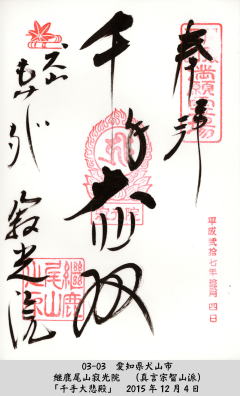 奉拝
平成弐拾七年拾弐月四日
千手大悲殿
犬山
もみじ
寂光院
継鹿尾山
03-03　愛知県犬山市
継鹿尾山寂光院　（真言宗智山派）
「千手大悲殿」　2015年12月4日